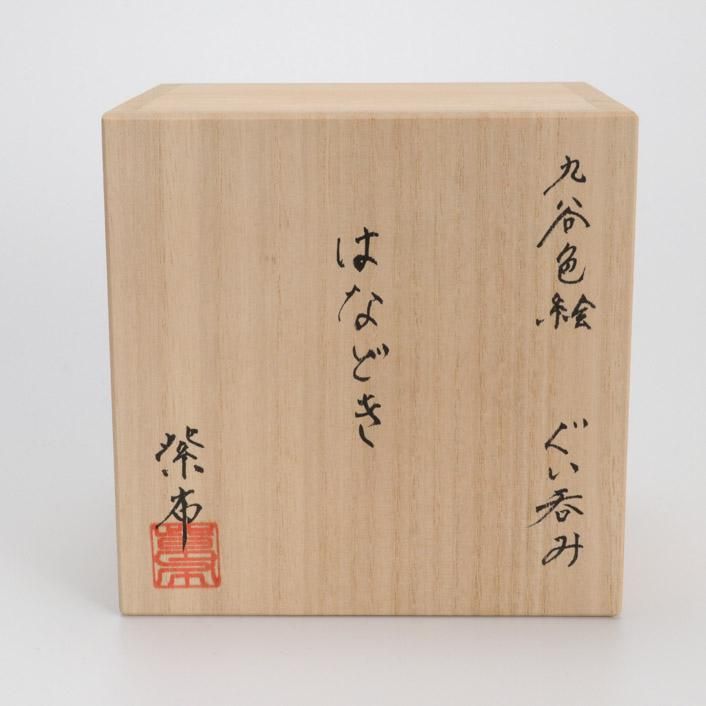 九谷色絵 ぐい呑み
はなどき
紫布